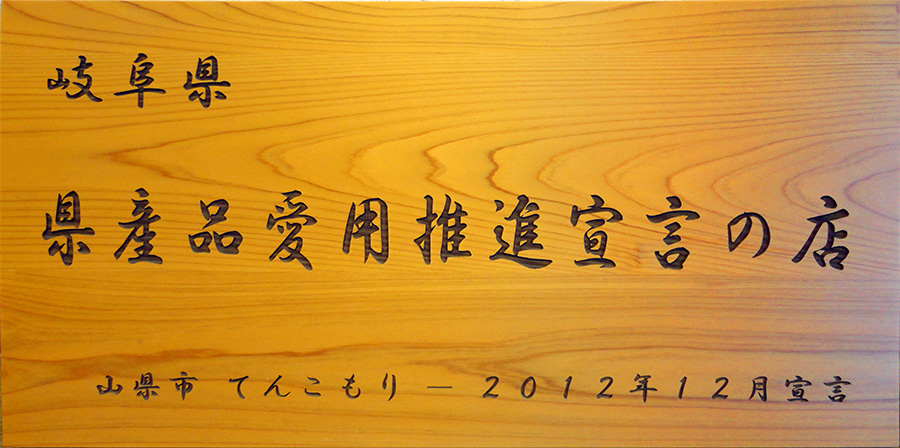 岐阜県
県産品愛用推進宣言の店
山県市 てんこもり ― 2012年12月宣言